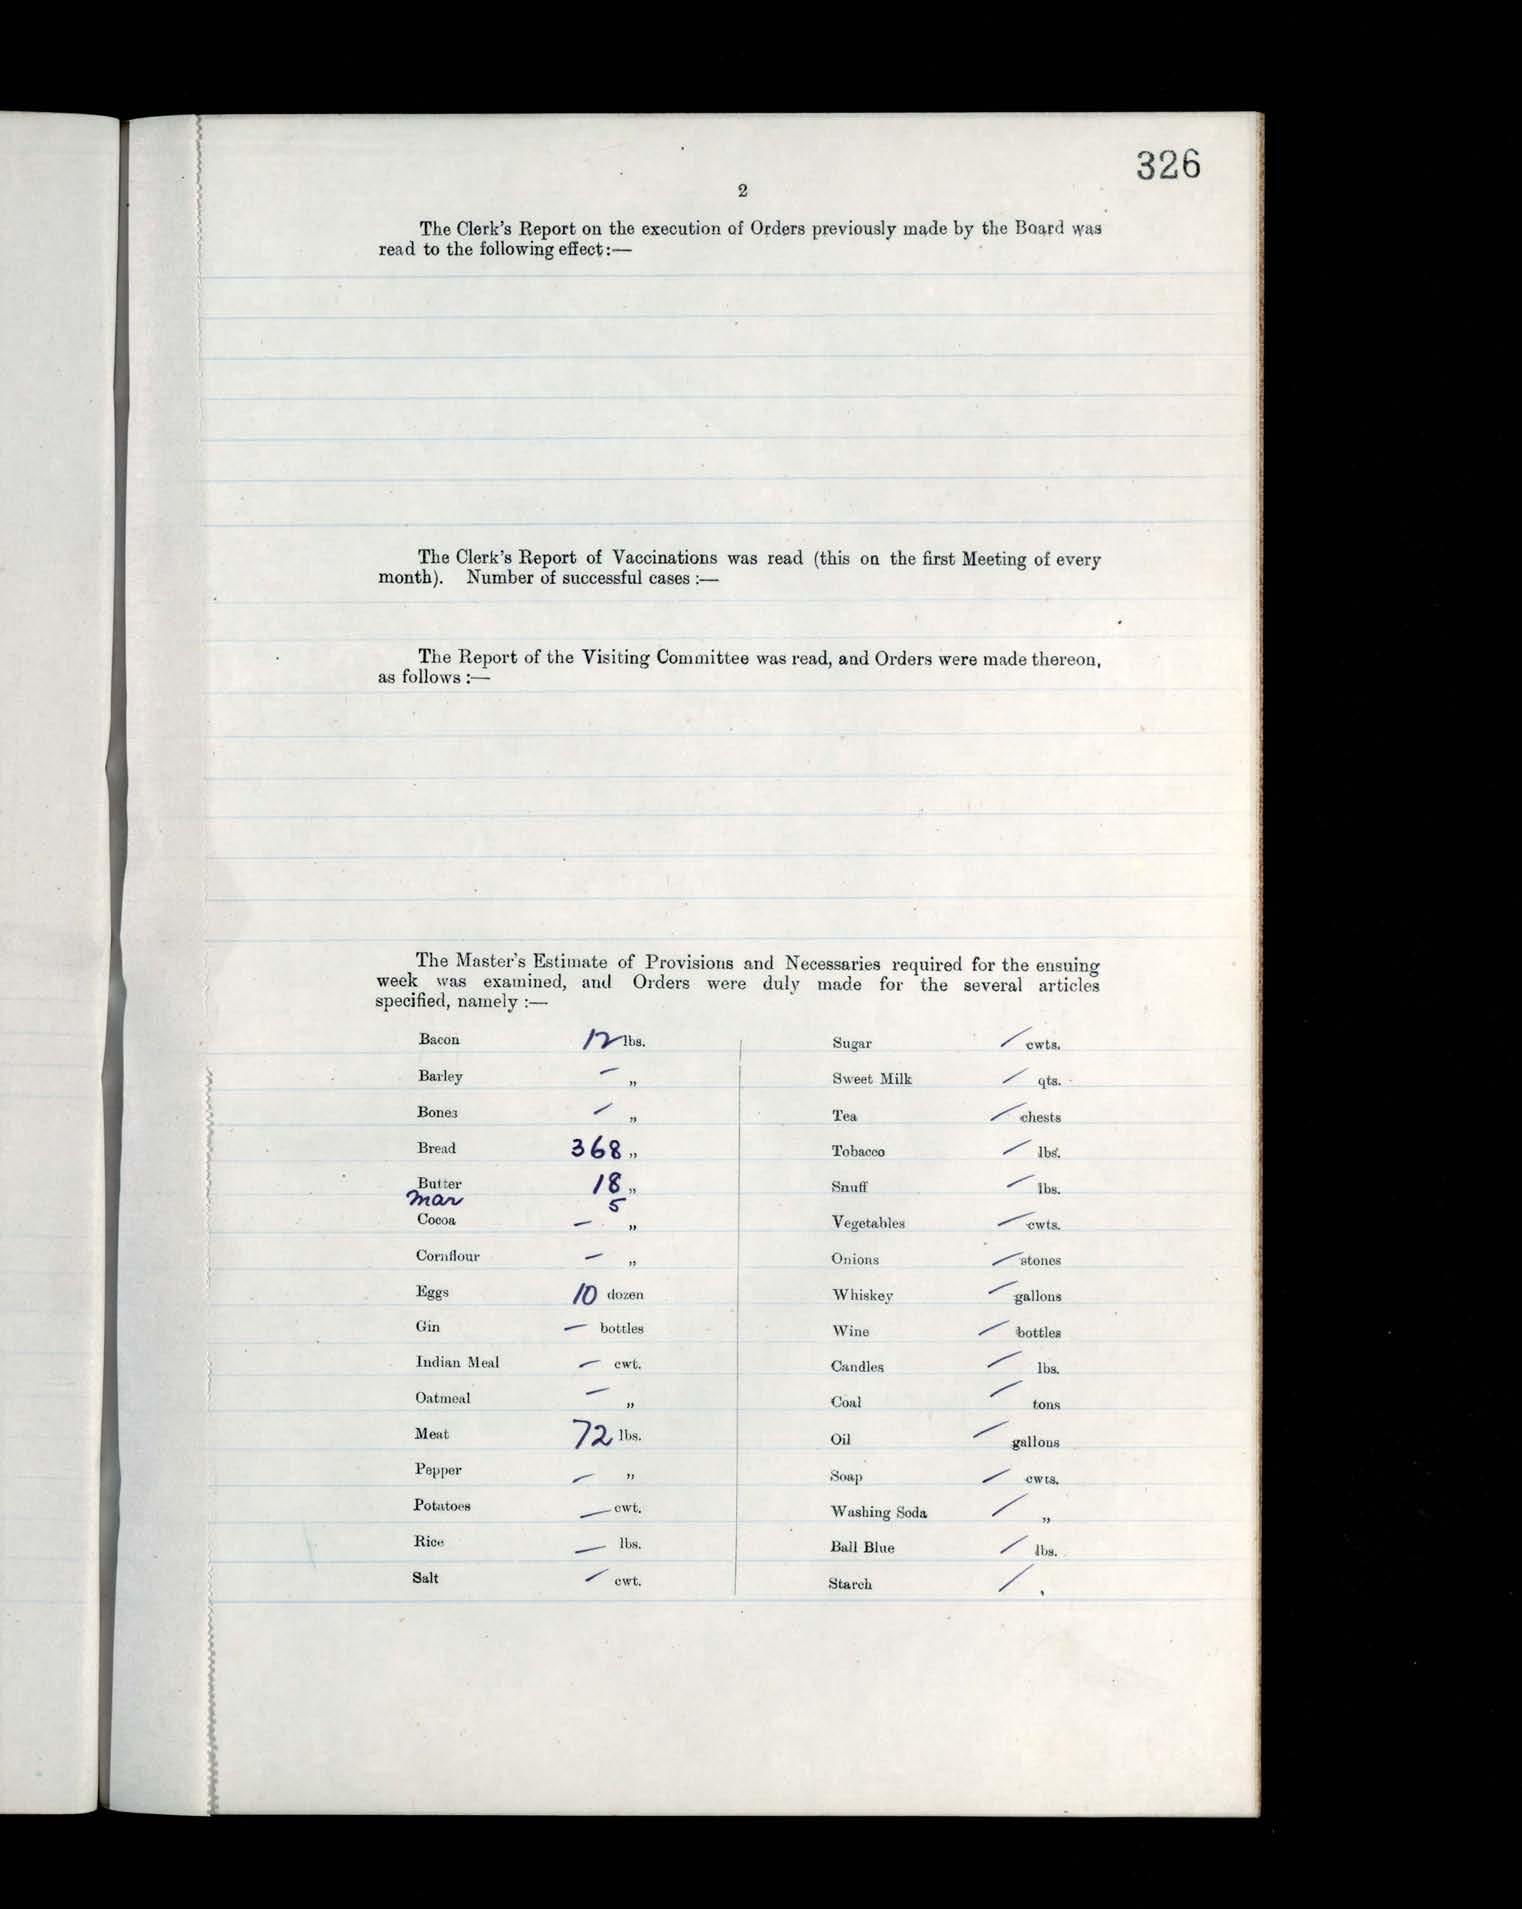 326
2
The Clerk's Report on the execution of Orders previously made by the Board was
read to the following effect:—
The Clerk's Report of Vaccinations was read (this on the first Meeting of every
month). Number of successful cases :—
The Report of the Visiting Committee was read, and Orders were made thereon,
as follows :—
The Master's Estimate of Provisions and Necessaries required for the ensuing
week was examined, and Orders were duly made for the several articles
specified, namely :—
Bacon 12 lbs.
Barley — „
Bones — „
Bread 368 „
Butter 18 „
Mar 5
Cocoa — „
Cornflour — „
Eggs 10 dozen
Gin — bottles
Indian Meal — cwt.
Oatmeal — „
Meat 72 lbs.
Pepper — „
Potatoes — cwt.
Rice — lbs.
Salt — cwt.
Sugar — cwts.
Sweet Milk — qts.
Tea — chests
Tobacco — lbs.
Snuff — lbs.
Vegetables — cwts.
Onions — stones
Whiskey — gallons
Wine — bottles
Candles — lbs.
Coal — tons
Oil — gallons
Soap — cwts.
Washing Soda — „
Ball Blue — lbs.
Starch — ,